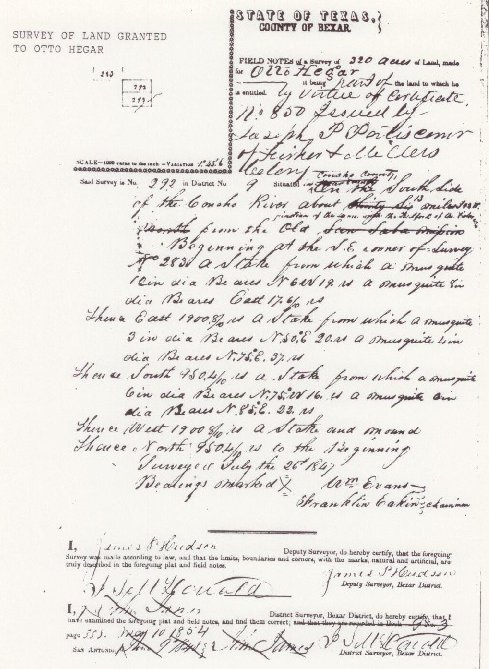 SURVEY OF LAND GRANTED
TO OTTO HEGAR
STATE OF TEXAS,
COUNTY OF BEXAR.
FIELD NOTES of a Survey of 320 acres of Land, made
for Otto Hegar
it being part of the land to which he
is entitled. by Virtue of Certificate
No 850 Issued by
Joseph P
of Fisher & Millers
Colony
SCALE—1000 varas to the inch—VARIATION
Said Survey is No. 292 in District No 9 Situated Concho County
In the South Side
of the Concho River about thirty six miles
north from the Old San Saba mission
Beginning at the S.E. corner of Survey
No 283 A Stake from which a musquite
in dia Bears N 6 W 19 vs a musquite 8 in
dia Bears East 17.6/10 vs
Thence East 1900 8/10 vs a Stake from which a musquite
3 in dia Bears N 50 E 20 vs a musquite 4 in
dia Bears N 75 E. 37 vs
Thence South 950 4/10 vs a Stake from which a musquite
6 in dia Bears N 75 W 16 vs a musquite 6 in
dia Bears N 85 E. 22 vs
Thence West 1900 8/10 vs a Stake and mound
Thence North 950 4/10 vs to the Beginning
Surveyed July the 26th 1847
Bearings marked X
Wm Evans
Franklin Eakin chainmen
I, James P Hudson Deputy Surveyor, do hereby certify, that the foregoing
Survey was made according to law, and that the limits, boundaries and corners, with the marks, natural and artificial, are
truly described in the foregoing plat and field notes.
James P Hudson
Deputy Surveyor, Bexar District.
I, District Surveyor, Bexar District, do hereby certify, that I
have examined the foregoing plat and field notes, and find them correct; and that they are recorded in Book
page 553. May 10 1854
SAN ANTONIO, James
District Surveyor, Bexar District.